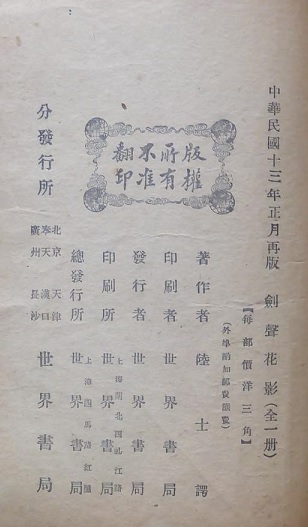 中華民國十三年正月再版
劍聲花影（全一册）
【每部價洋三角】
（外埠酌加郵費滙費）
版權所有
不准翻印
著作者 陸士諤
印刷者 世界書局
發行者 世界書局
印刷所 世界書局
上海閘北西虬江路
總發行所 世界書局
上海四馬路紅屋
分發行所 世界書局
北京 天津
奉天 漢口
廣州 長沙